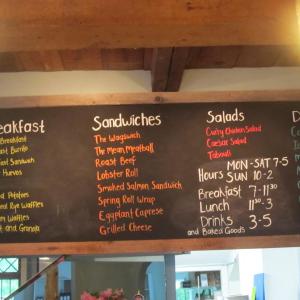 eakfast
Breakfast
ast Burrito
fast Sandwich
Huevos
d Potatoes
ed Rye Waffles
m Waffles
t and Granola
Sandwiches
The Wagswich
The Mean Meatball
Roast Beef
Lobster Roll
Smoked Salmon Sandwich
Spring Roll Wrap
Eggplant Caprese
Grilled Cheese
Salads
Curry Chicken Salad
Caesar Salad
Tabouli
MON-SAT 7-5
Hours SUN 10-2
Breakfast 7-11:30
Lunch 11:30-3
Drinks 3-5
and Baked Goods
D